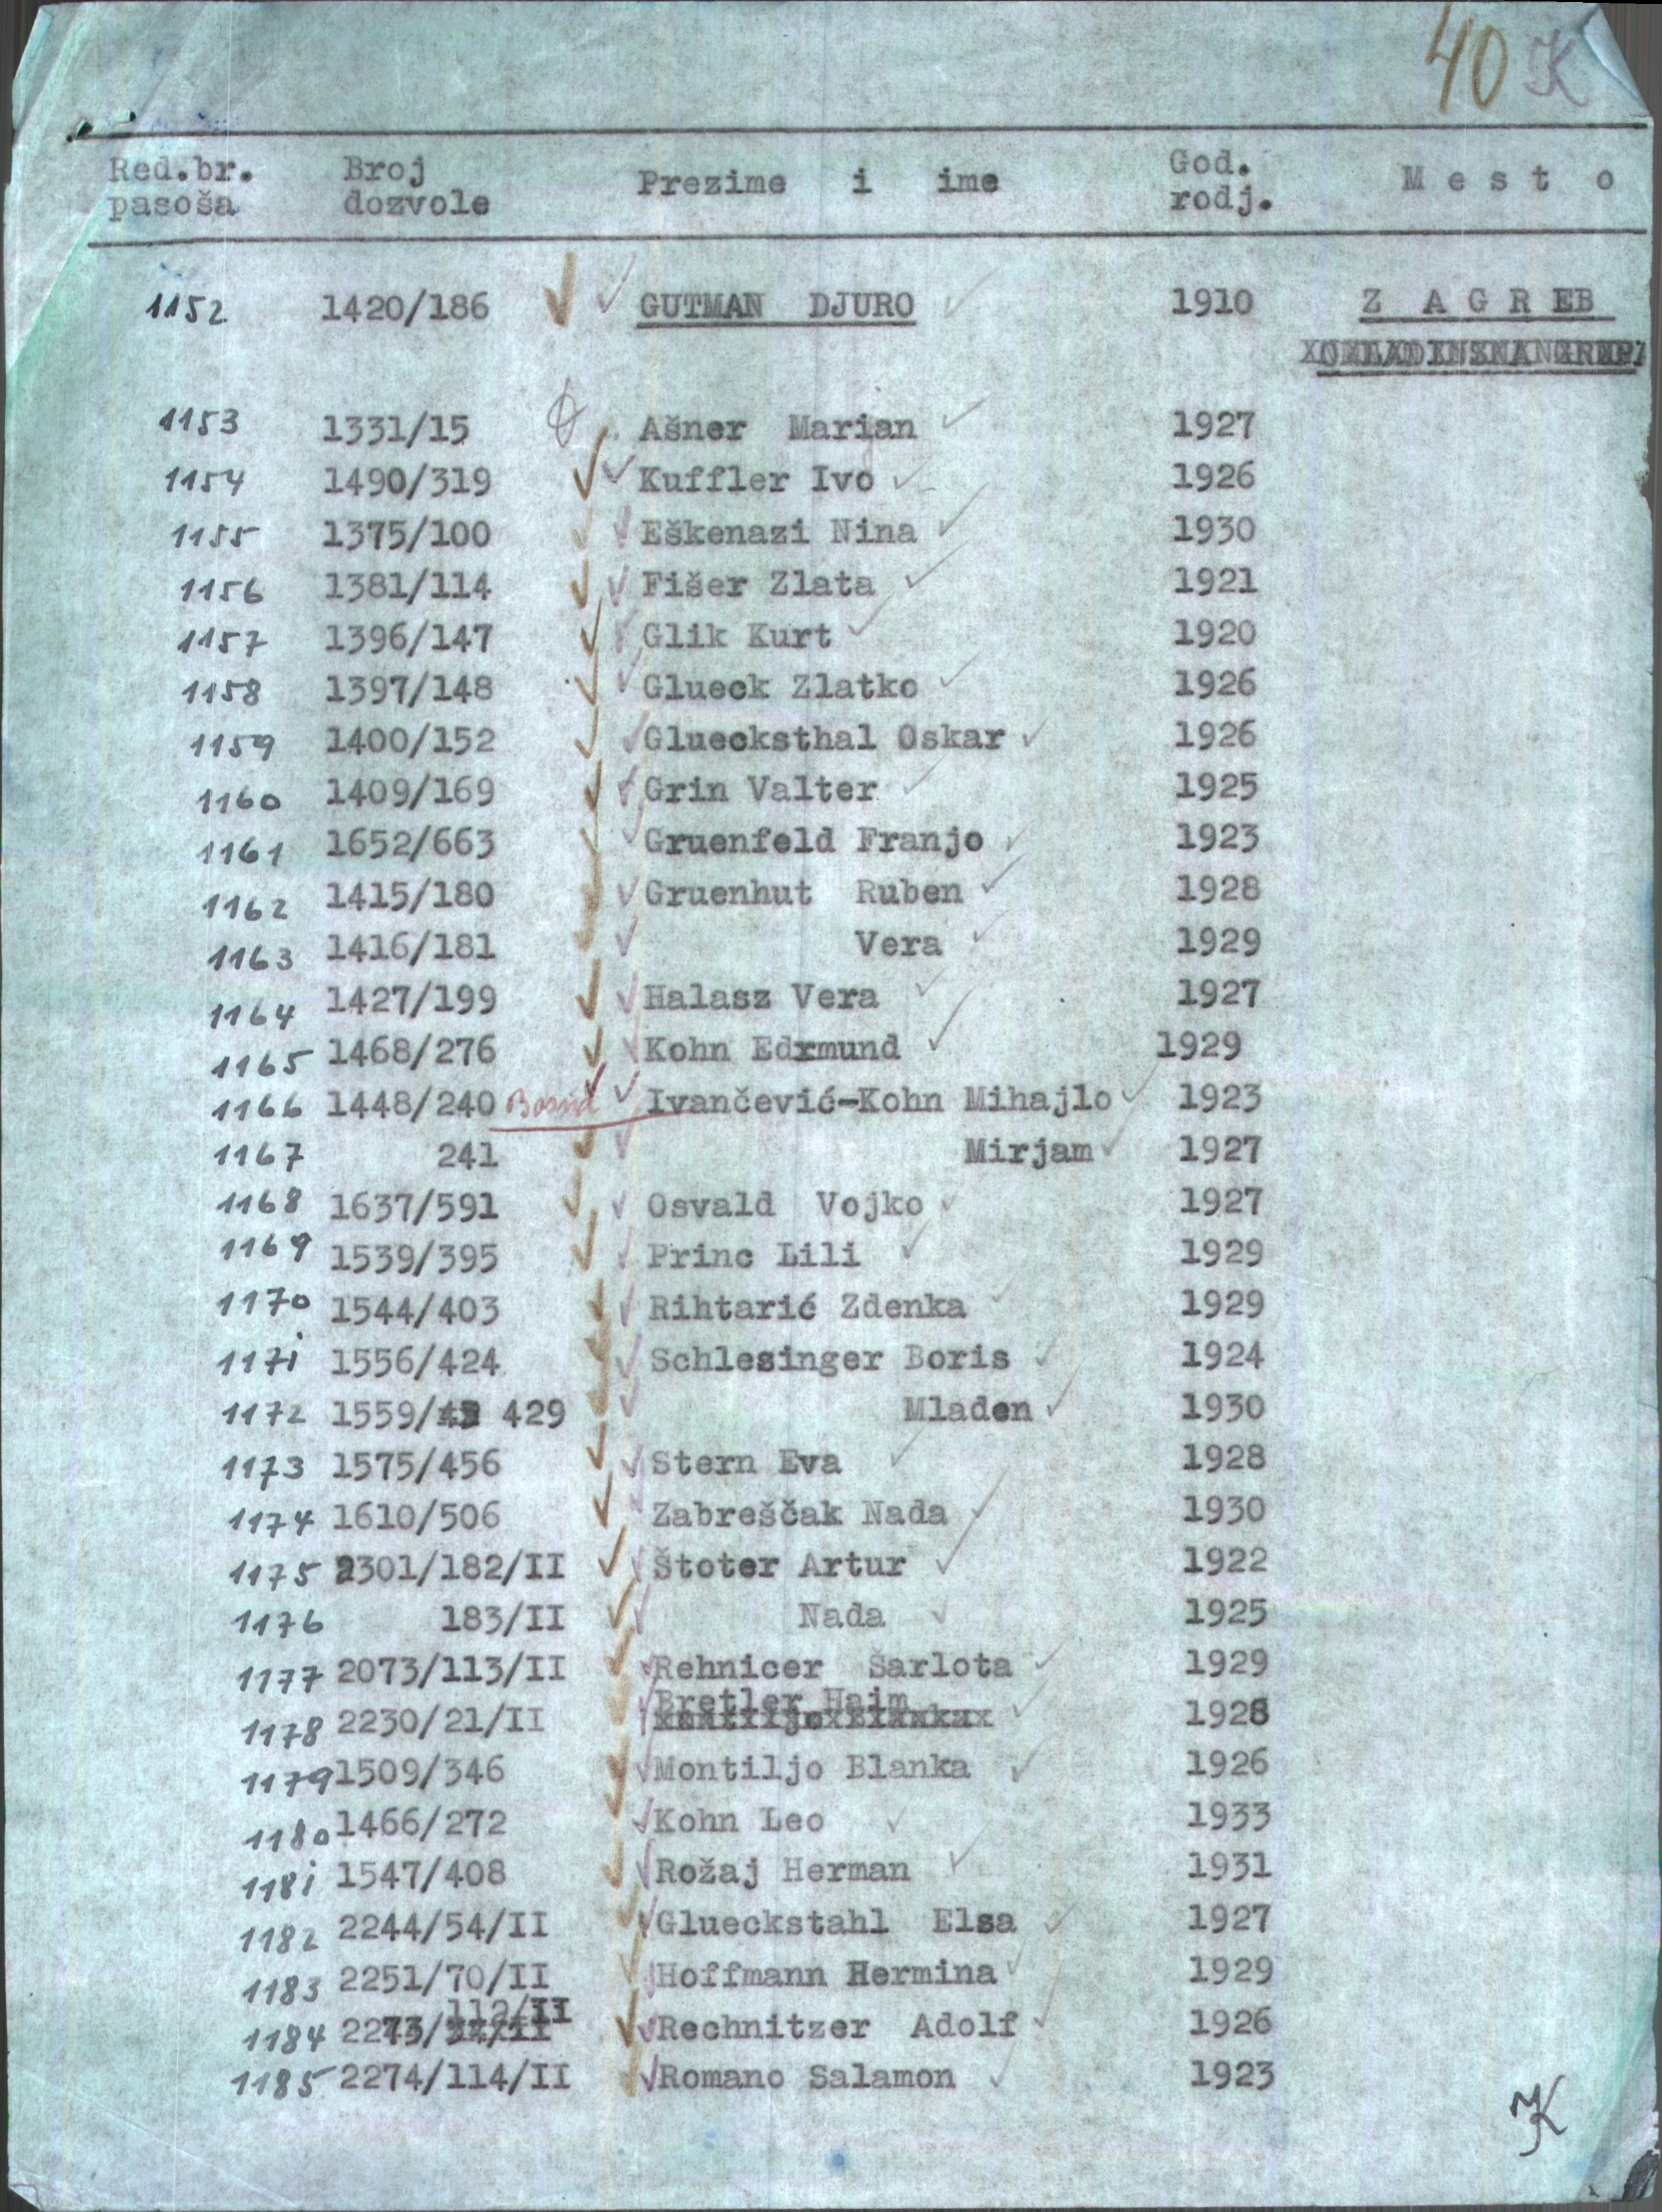 40 K
Red.br. Broj Prezime i ime God. M e s t o
pasoša dozvole rodj.
1152 1420/186 GUTMAN DJURO 1910 Z A G R EB
1153 1331/15 Ašner Marijan 1927
1154 1490/319 Kuffler Ivo 1926
1155 1375/100 Eškenazi Nina 1930
1156 1381/114 Fišer Zlata 1921
1157 1396/147 Glik Kurt 1920
1158 1397/148 Glueck Zlatko 1926
1159 1400/152 Gluecksthal Oskar 1926
1160 1409/169 Grin Valter 1925
1161 1652/663 Gruenfeld Franjo 1923
1162 1415/180 Gruenhut Ruben 1928
1163 1416/181 Vera 1929
1164 1427/199 Halasz Vera 1927
1165 1468/276 Kohn Edxmund 1929
1166 1448/240 Ivančević-Kohn Mihajlo 1923
1167 241 Mirjam 1927
1168 1637/591 Osvald Vojko 1927
1169 1539/395 Princ Lili 1929
1170 1544/403 Rihtarić Zdenka 1929
1171 1556/424 Schlesinger Boris 1924
1172 1559/ 429 Mladen 1930
1173 1575/456 Stern Eva 1928
1174 1610/506 Zabreščak Nada 1930
1175 2301/182/II Štoter Artur 1922
1176 183/II Nada 1925
1177 2073/113/II Rehnicer Šarlota 1929
1178 2230/21/II Bretler Haim 1928
1179 1509/346 Montiljo Blanka 1926
1180 1466/272 Kohn Leo 1933
1181 1547/408 Rožaj Herman 1931
1182 2244/54/II Glueckstahl Elsa 1927
1183 2251/70/II Hoffmann Hermina 1929
1184 2273/112/II Rechnitzer Adolf 1926
1185 2274/114/II Romano Salamon 1923
K